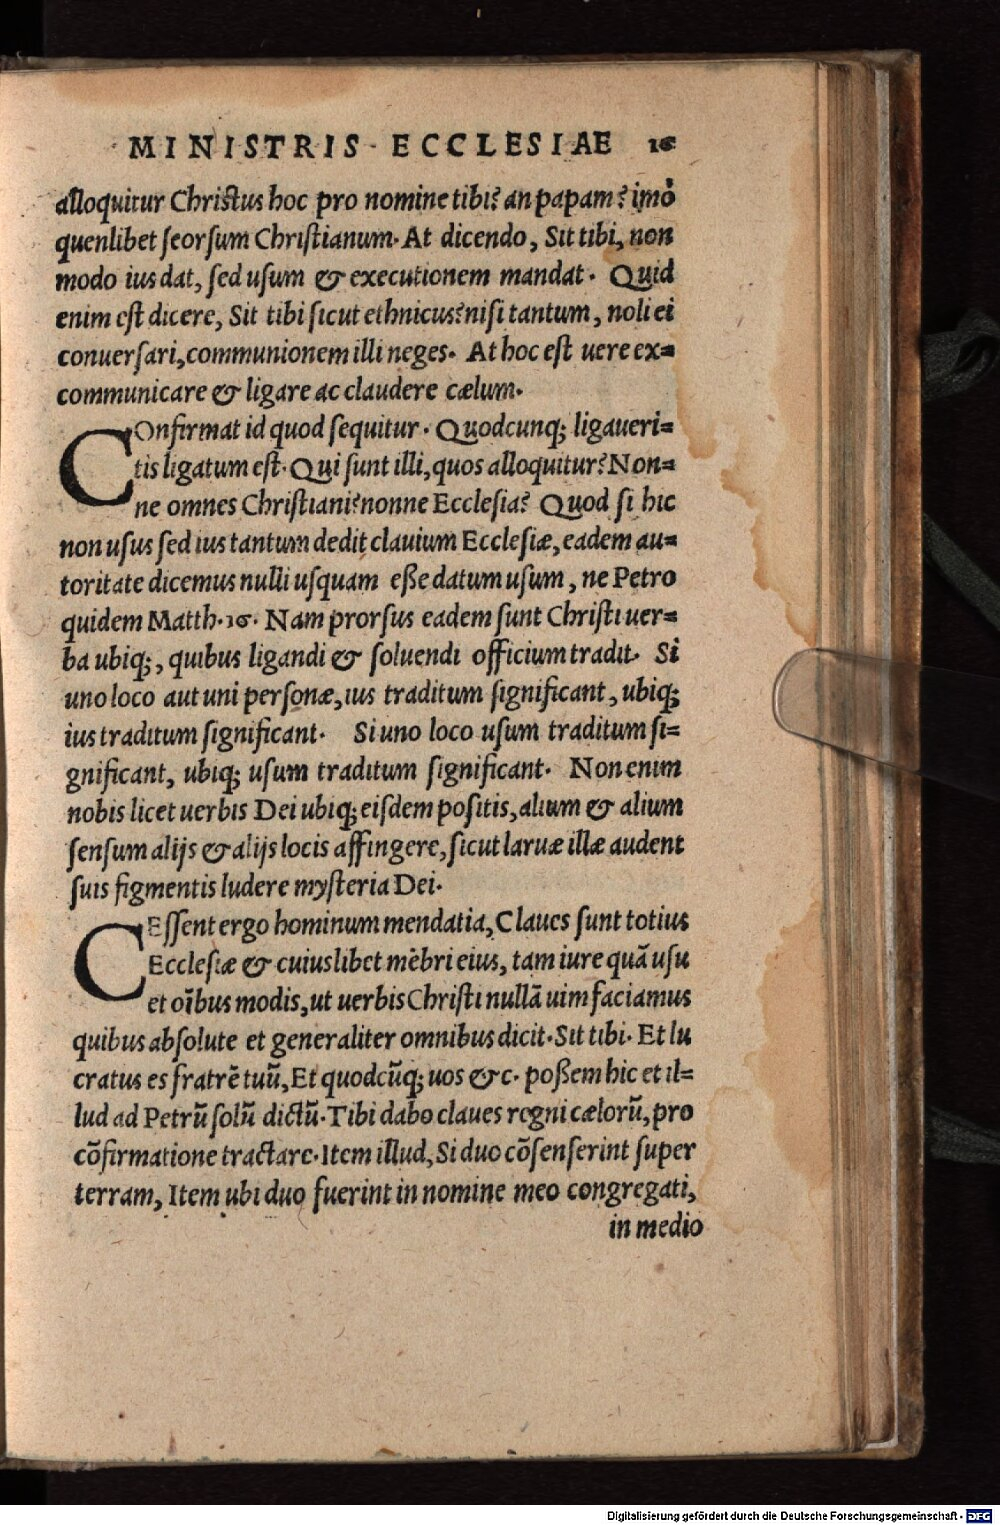 MINISTRIS ECCLESIAE 16
alloquitur Chriſtus hoc pro nomine tibi? an papam? imò
quenlibet ſeorſum Chriſtianum. At dicendo, Sit tibi, non
modo ius dat, ſed uſum & executionem mandat. Quid
enim eſt dicere, Sit tibi ſicut ethnicus? niſi tantum, noli ei
conuerſari, communionem illi neges. At hoc eſt uere ex=
communicare & ligare ac claudere cælum.
COnfirmat id quod ſequitur. Quodcunq; ligaueri=
tis ligatum eſt. Qui ſunt illi, quos alloquitur? Non=
ne omnes Chriſtiani? nonne Eccleſia? Quod ſi hic
non uſus ſed ius tantum dedit clauium Eccleſiæ, eadem au=
toritate dicemus nulli uſquam eße datum uſum, ne Petro
quidem Matth. 16. Nam prorſus eadem ſunt Chriſti uer=
ba ubiq;, quibus ligandi & ſoluendi officium tradit. Si
uno loco aut uni perſonæ, ius traditum ſignificant, ubiq;
ius traditum ſignificant. Si uno loco uſum traditum ſi=
gnificant, ubiq; uſum traditum ſignificant. Non enim
nobis licet uerbis Dei ubiq; eiſdem poſitis, alium & alium
ſenſum alijs & alijs locis affingere, ſicut laruæ illæ audent
ſuis figmentis ludere myſteria Dei.
CEſſent ergo hominum mendatia, Claues ſunt totius
Eccleſiæ & cuiuslibet mẽbri eius, tam iure quã uſu
et oĩbus modis, ut uerbis Chriſti nullã uim faciamus
quibus abſolute et generaliter omnibus dicit. Sit tibi. Et lu
cratus es fratrẽ tuũ, Et quodcũq; uos &c. poßem hic et il=
lud ad Petrũ ſolũ dictũ. Tibi dabo claues regni cælorũ, pro
cõfirmatione tractare. Item illud, Si duo cõſenſerint ſuper
terram, Item ubi duo fuerint in nomine meo congregati,
in medio
Digitalisierung gefördert durch die Deutsche Forschungsgemeinschaft - DFG